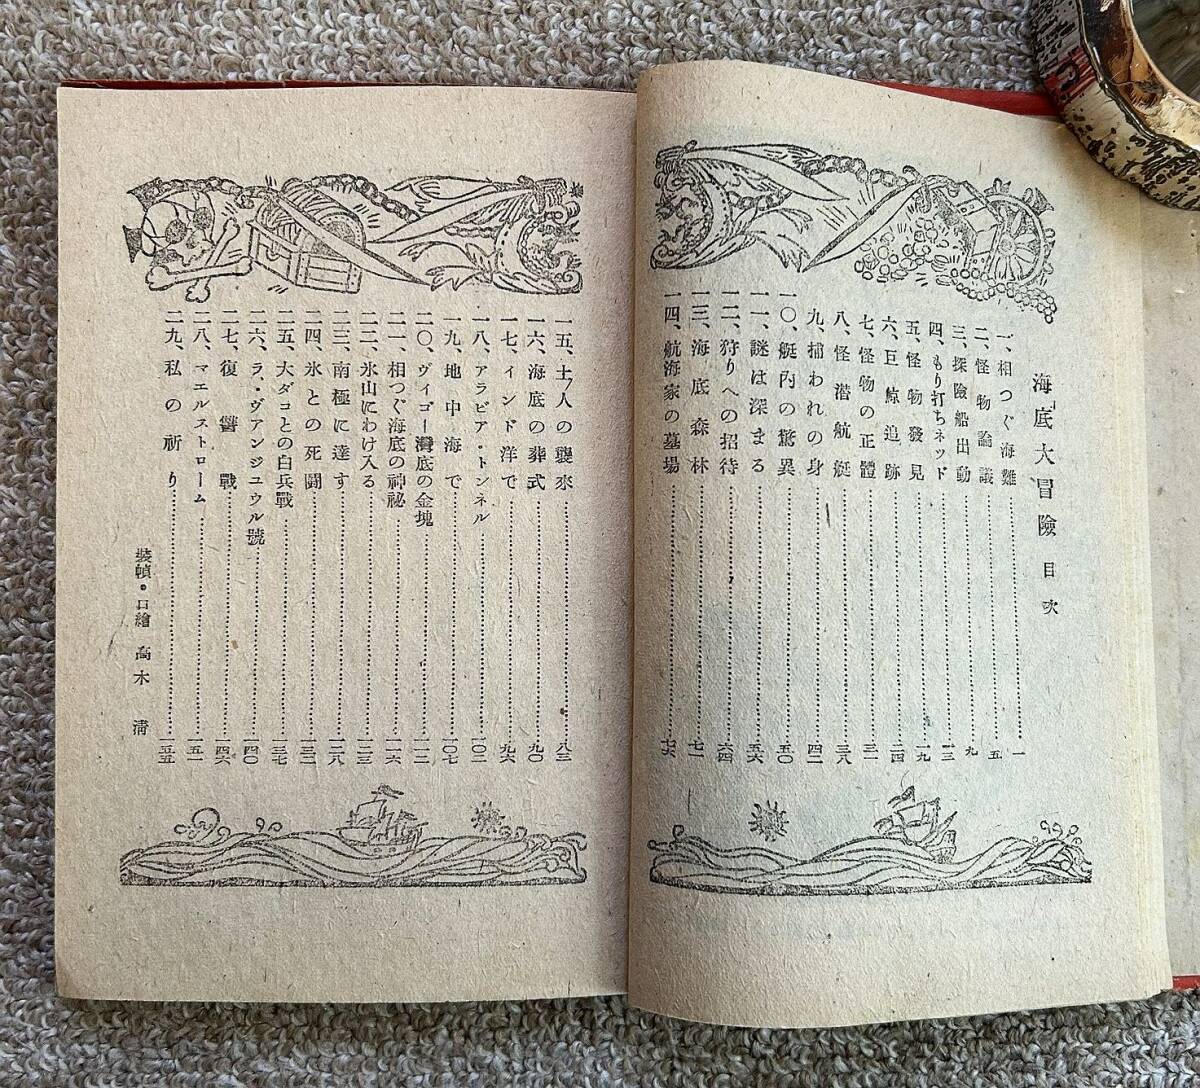 海底大冒險 目次
一、相つぐ海難…………一
二、怪物論議…………五
三、探險船出動…………九
四、もり打ちネッド…………一三
五、怪物發見…………一九
六、巨鯨追跡…………二四
七、怪物の正體…………三一
八、怪潜航艇…………三八
九、捕われの身…………四二
一〇、艇内の驚異…………五〇
一一、謎は深まる…………五六
一二、狩りへの招待…………六四
一三、海底森林…………七一
一四、航海家の墓場…………七六
一五、土人の襲來…………八三
一六、海底の葬式…………九〇
一七、インド洋で…………九六
一八、アラビア・トンネル…………一〇二
一九、地中海で…………一〇七
二〇、ヴィゴー灣底の金塊…………一一二
二一、相つぐ海底の神祕…………一一六
二二、氷山にわけ入る…………一二三
二三、南極に達す…………一二八
二四、氷との死闘…………一三二
二五、大ダコとの白兵戰…………一三七
二六、ラ・ヴァンジュウル號…………一四〇
二七、復讐戰…………一四六
二八、マエルストローム…………一五一
二九、私の祈り…………一五五
裝幀・口繪 高木 淸